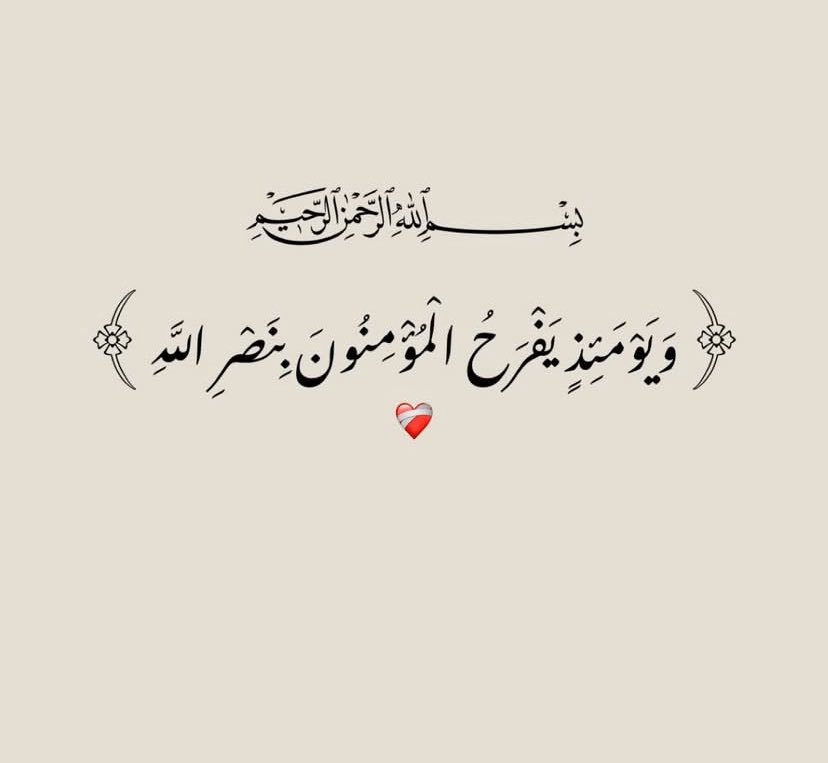 بِسْمِ اللهِ الرَّحْمٰنِ الرَّحِيْمِ
﴿ وَيَوْمَئِذٍ يَفْرَحُ الْمُؤْمِنُونَ بِنَصْرِ اللَّهِ ﴾
❤️‍🩹